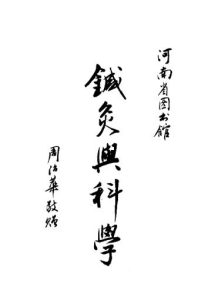 河南省图书馆
鍼灸與科學
周治華敬贈